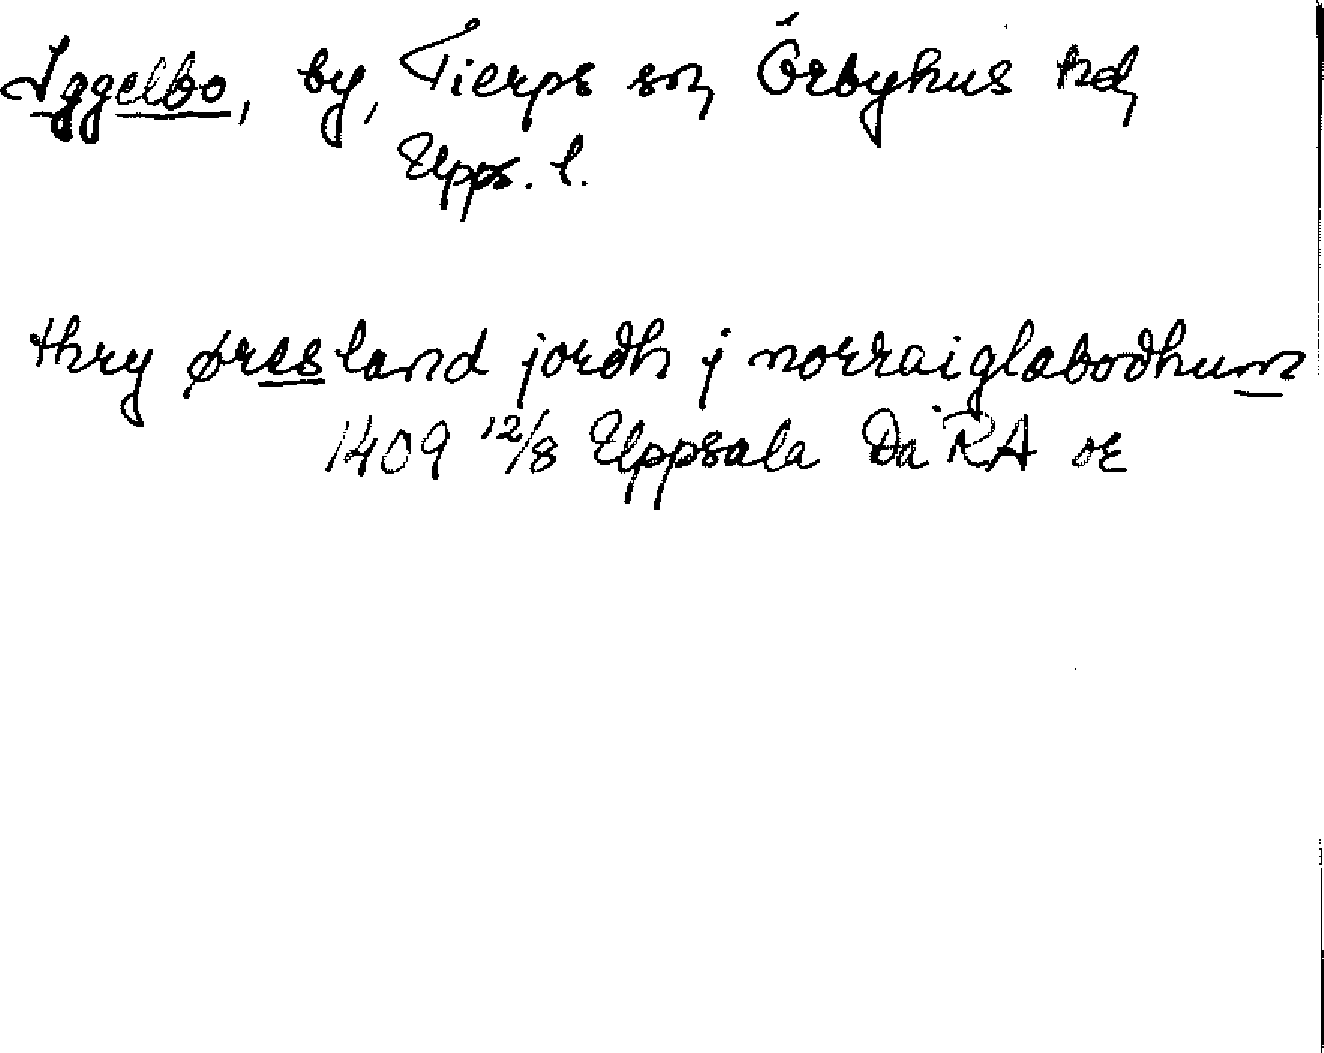 Iggelbo, by, Tierps sn, Örbyhus hd,
Upps. l.
thry øressland jordh j norraiglabodhum
1409 12/8 Uppsala Da RA or